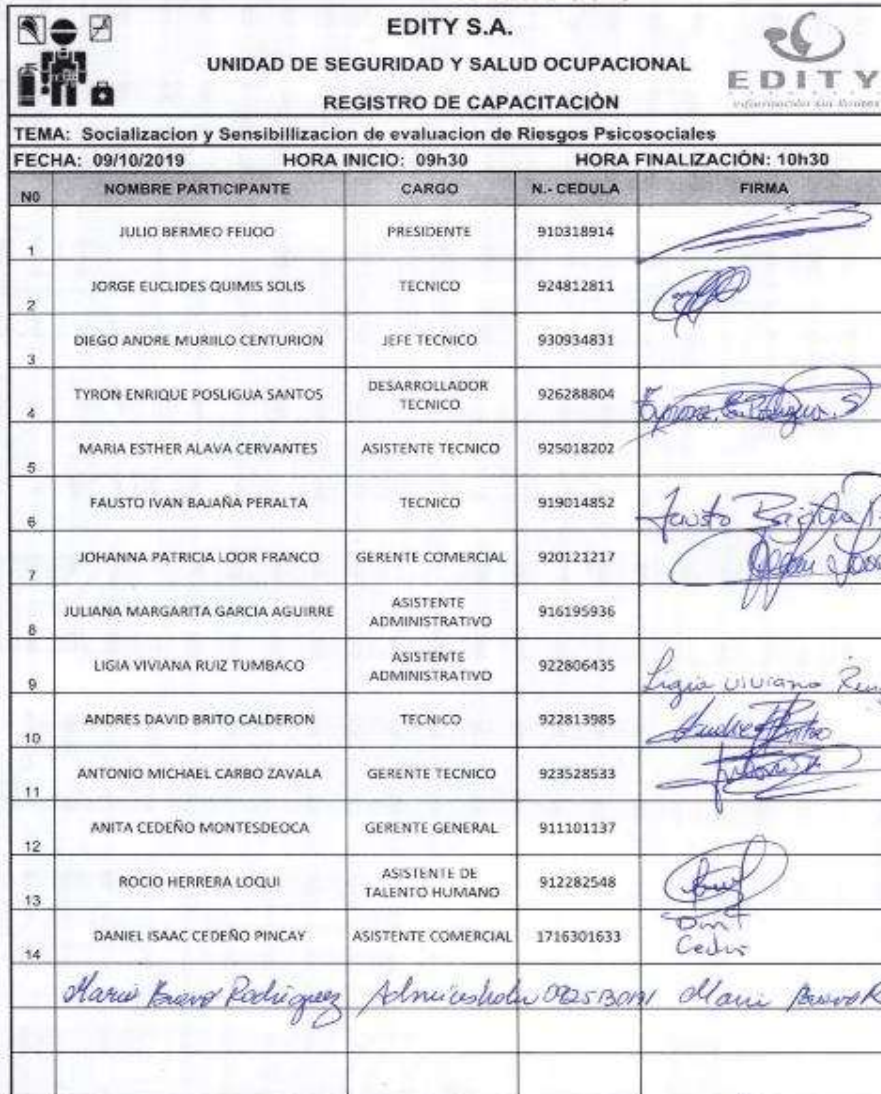 EDITY S.A.
UNIDAD DE SEGURIDAD Y SALUD OCUPACIONAL
REGISTRO DE CAPACITACIÒN
EDITY
TEMA: Socializacion y Sensibillizacion de evaluacion de Riesgos Psicosociales
FECHA: 09/10/2019 HORA INICIO: 09h30 HORA FINALIZACIÓN: 10h30
N0 NOMBRE PARTICIPANTE CARGO N.- CEDULA FIRMA
1 JULIO BERMEO FEIJOO PRESIDENTE 910318914
2 JORGE EUCLIDES QUIMIS SOLIS TECNICO 924812811
3 DIEGO ANDRE MURIILO CENTURION JEFE TECNICO 930934831
4 TYRON ENRIQUE POSLIGUA SANTOS DESARROLLADOR TECNICO 926288804
5 MARIA ESTHER ALAVA CERVANTES ASISTENTE TECNICO 925018202
6 FAUSTO IVAN BAJAÑA PERALTA TECNICO 919014852 Fausto
7 JOHANNA PATRICIA LOOR FRANCO GERENTE COMERCIAL 920121217
8 JULIANA MARGARITA GARCIA AGUIRRE ASISTENTE ADMINISTRATIVO 916195936
9 LIGIA VIVIANA RUIZ TUMBACO ASISTENTE ADMINISTRATIVO 922806435 Ligia Viviana
10 ANDRES DAVID BRITO CALDERON TECNICO 922813985
11 ANTONIO MICHAEL CARBO ZAVALA GERENTE TECNICO 923528533
12 ANITA CEDEÑO MONTESDEOCA GERENTE GENERAL 911101137
13 ROCIO HERRERA LOQUI ASISTENTE DE TALENTO HUMANO 912282548
14 DANIEL ISAAC CEDEÑO PINCAY ASISTENTE COMERCIAL 1716301633
Bravo Rodriguez